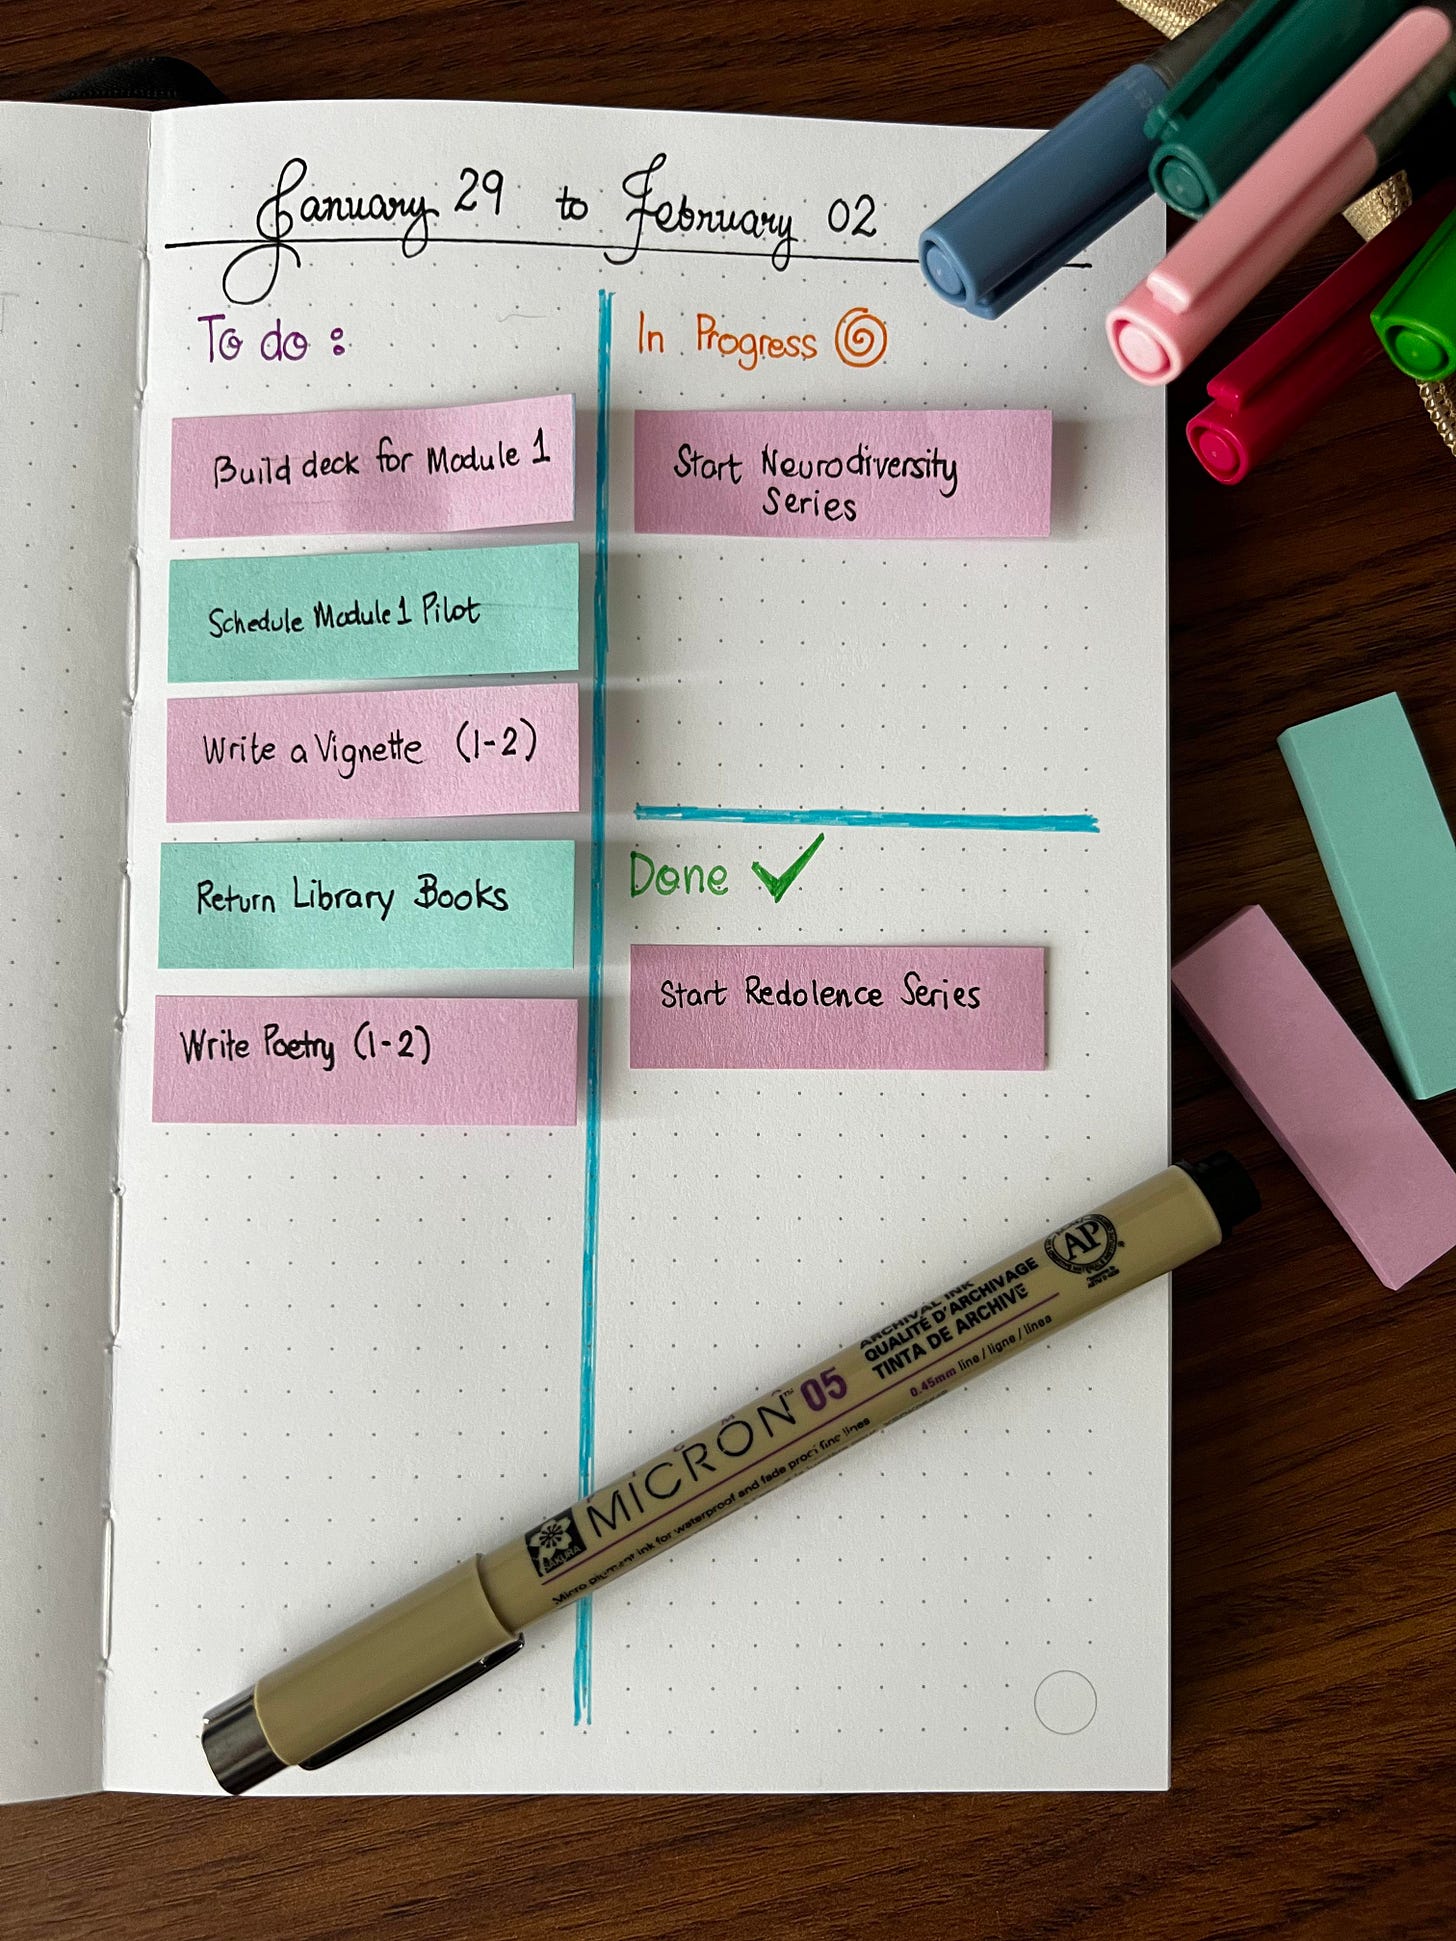 January 29 to February 02
To do :
Build deck for Module 1
Schedule Module 1 Pilot
Write a Vignette (1-2)
Return Library Books
Write Poetry (1-2)
In Progress
Start Neurodiversity
Series
Done ✓
Start Redolence Series
SAKURA
MICRON™ 05
ARCHIVAL INK
QUALITÉ D'ARCHIVAGE
TINTA DE ARCHIVE
0.45mm line / ligne / linea
Micro pigment ink for waterproof and fade proof fine lines
AP